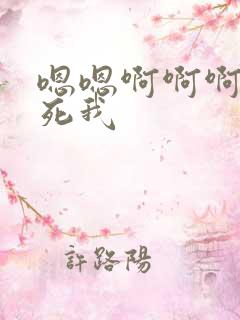 嗯嗯啊啊啊
死我
許路陽